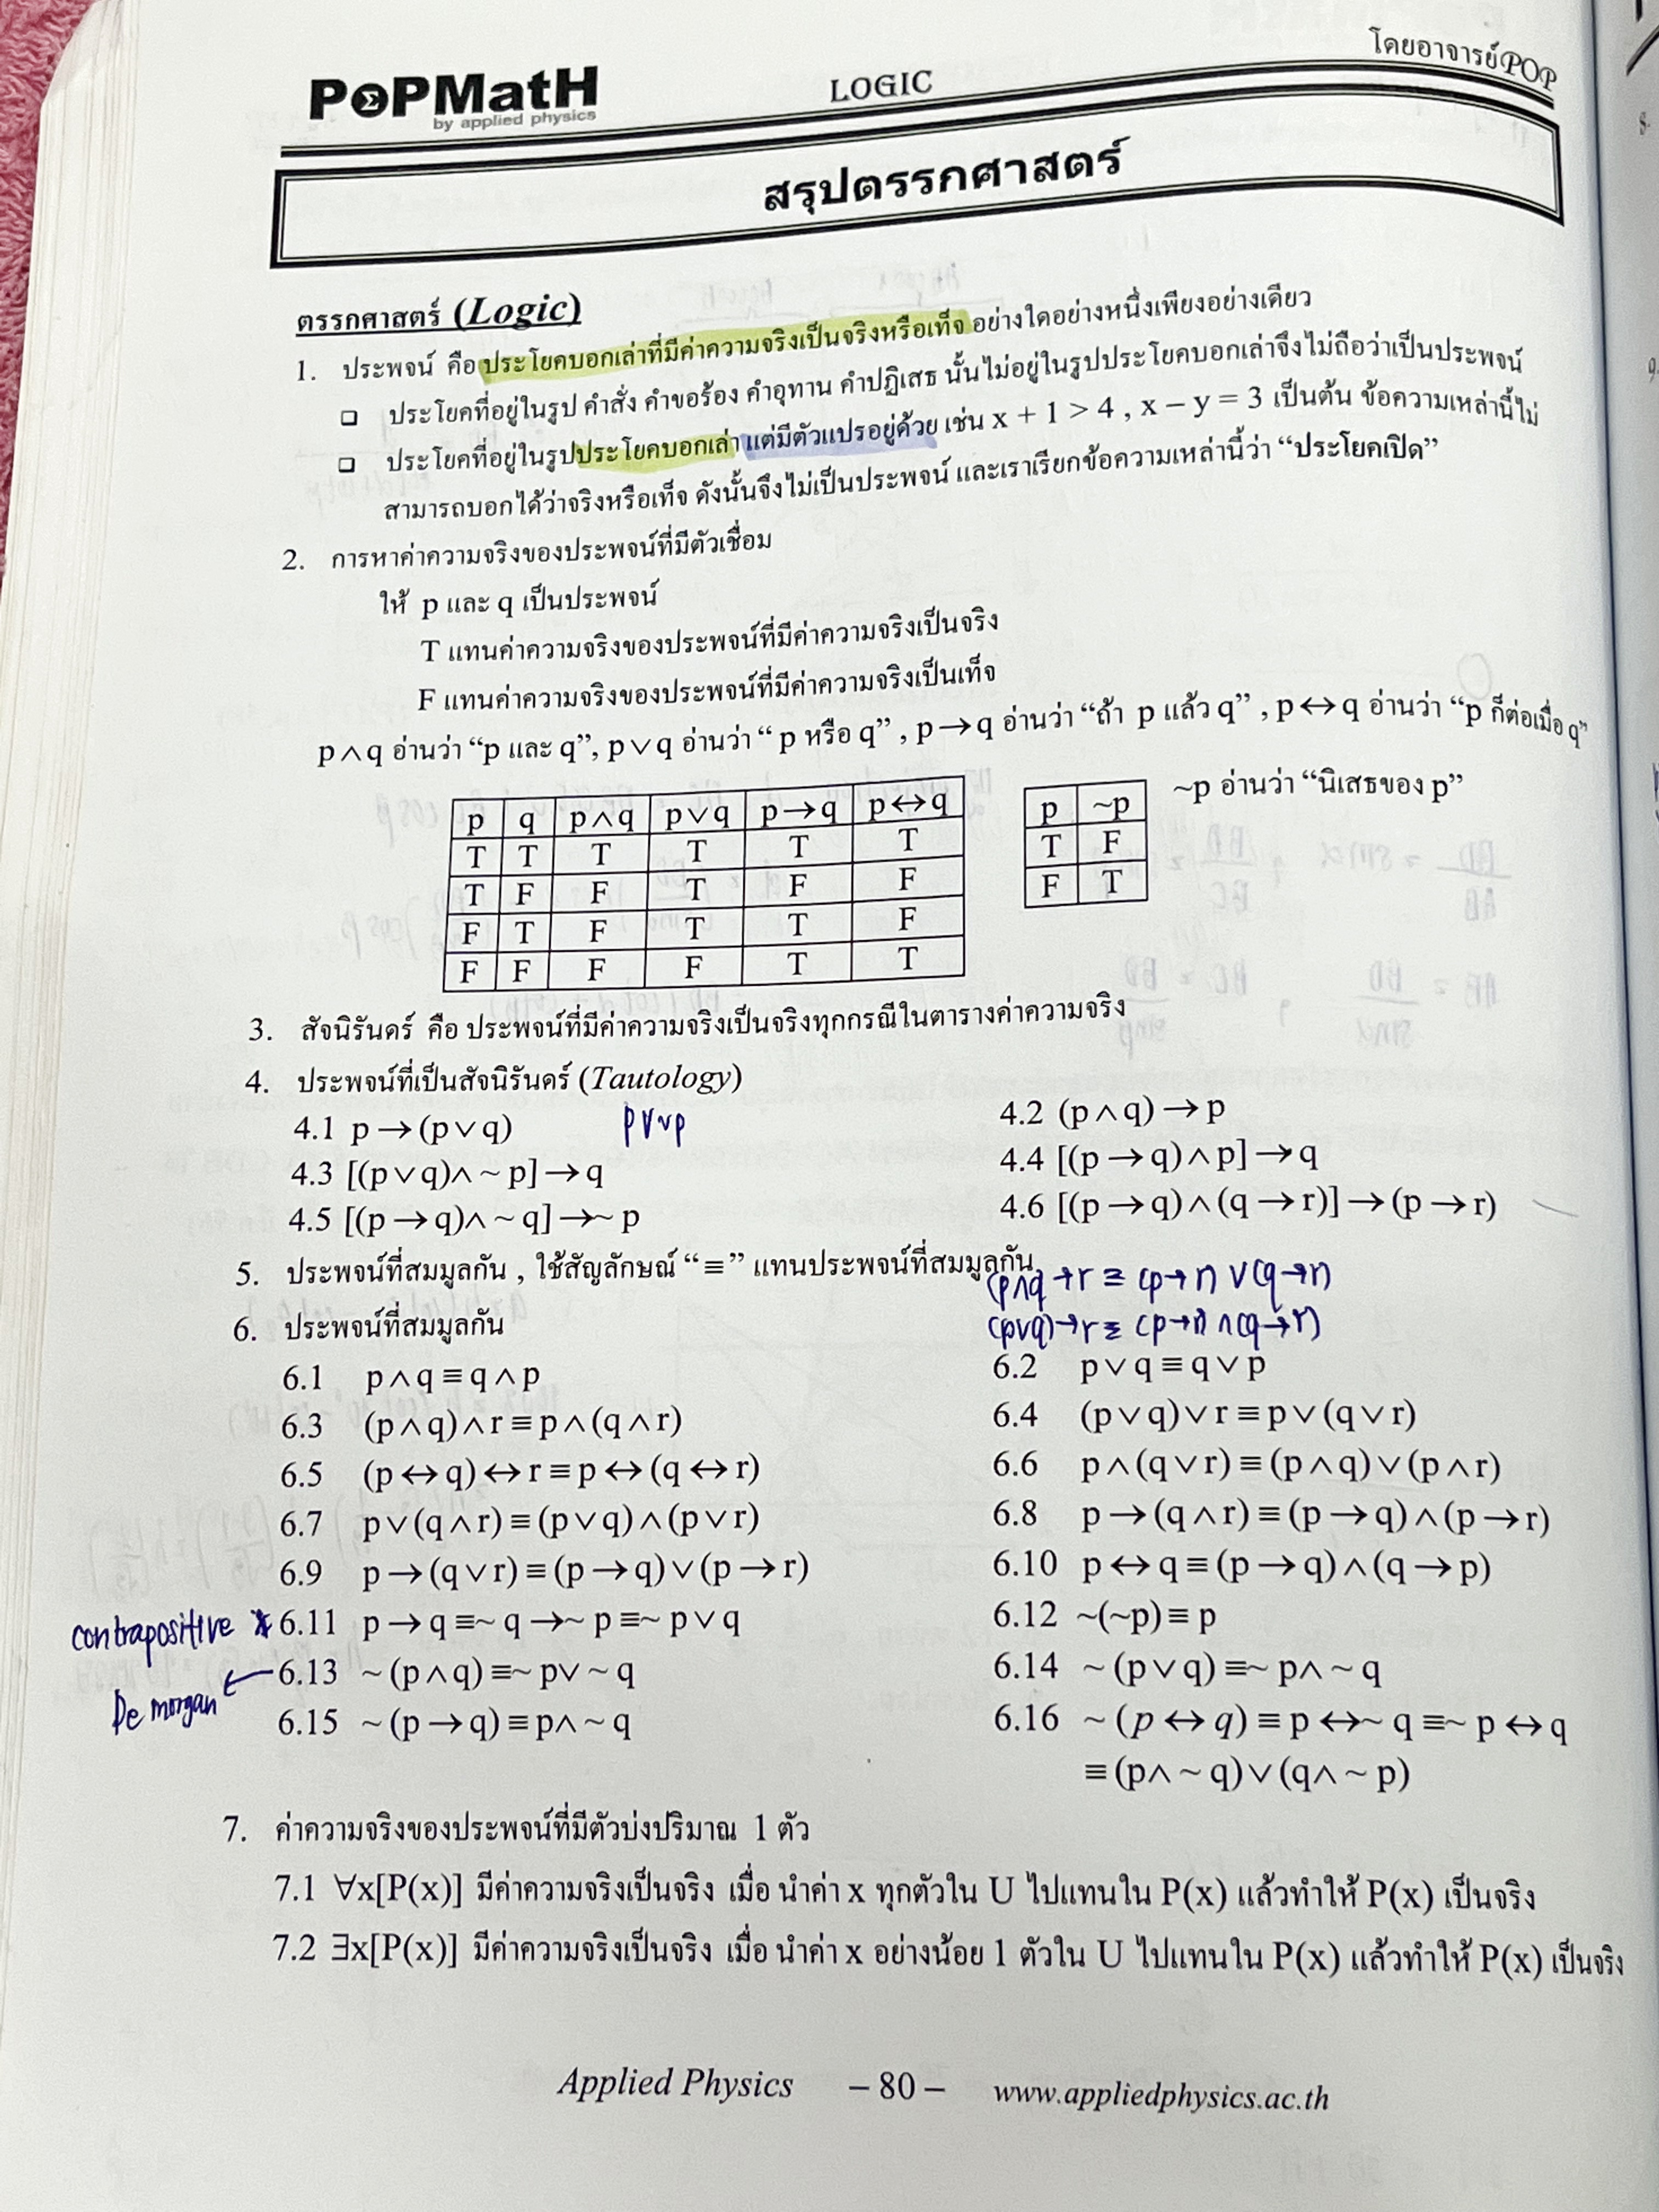 โดยอาจารย์POP
PoPMatH
by applied physics
LOGIC
สรุปตรรกศาสตร์
ตรรกศาสตร์ (Logic)
1. ประพจน์ คือ ประโยคบอกเล่าที่มีค่าความจริงเป็นจริงหรือเท็จ อย่างใดอย่างหนึ่งเพียงอย่างเดียว
❑ ประโยคที่อยู่ในรูป คำสั่ง คำขอร้อง คำอุทาน คำปฏิเสธ นั้นไม่อยู่ในรูปประโยคบอกเล่าจึงไม่ถือว่าเป็นประพจน์
❑ ประโยคที่อยู่ในรูปประโยคบอกเล่า แต่มีตัวแปรอยู่ด้วย เช่น x + 1 > 4 , x – y = 3 เป็นต้น ข้อความเหล่านี้ไม่
สามารถบอกได้ว่าจริงหรือเท็จ ดังนั้นจึงไม่เป็นประพจน์ และเราเรียกข้อความเหล่านี้ว่า “ประโยคเปิด”
2. การหาค่าความจริงของประพจน์ที่มีตัวเชื่อม
ให้ p และ q เป็นประพจน์
T แทนค่าความจริงของประพจน์ที่มีค่าความจริงเป็นจริง
F แทนค่าความจริงของประพจน์ที่มีค่าความจริงเป็นเท็จ
p∧q อ่านว่า “p และ q”, p∨q อ่านว่า “ p หรือ q” , p→q อ่านว่า “ถ้า p แล้ว q” , p↔q อ่านว่า “p ก็ต่อเมื่อ q”
p q p∧q p∨q p→q p↔q
T T T T T T
T F F T F F
F T F T T F
F F F F T T
p ~p
T F
F T
~p อ่านว่า “นิเสธของ p”
3. สัจนิรันดร์ คือ ประพจน์ที่มีค่าความจริงเป็นจริงทุกกรณีในตารางค่าความจริง
4. ประพจน์ที่เป็นสัจนิรันดร์ (Tautology)
4.1 p→(p∨q) p∨~p
4.2 (p∧q)→p
4.3 [(p∨q)∧~p]→q
4.4 [(p→q)∧p]→q
4.5 [(p→q)∧~q]→~p
4.6 [(p→q)∧(q→r)]→(p→r)
5. ประพจน์ที่สมมูลกัน , ใช้สัญลักษณ์ “≡” แทนประพจน์ที่สมมูลกัน
(p∧q→r ≡ (p→r) ∨(q→r)
(p∨q)→r ≡ (p→r) ∧(q→r)
6. ประพจน์ที่สมมูลกัน
6.1 p∧q≡q∧p
6.2 p∨q≡q∨p
6.3 (p∧q)∧r≡p∧(q∧r)
6.4 (p∨q)∨r≡p∨(q∨r)
6.5 (p↔q)↔r≡p↔(q↔r)
6.6 p∧(q∨r)≡(p∧q)∨(p∧r)
6.7 p∨(q∧r)≡(p∨q)∧(p∨r)
6.8 p→(q∧r)≡(p→q)∧(p→r)
6.9 p→(q∨r)≡(p→q)∨(p→r)
6.10 p↔q≡(p→q)∧(q→p)
contrapositive * 6.11 p→q≡~q→~p≡~p∨q
6.12 ~(~p)≡p
6.13 ~(p∧q)≡~p∨~q
6.14 ~(p∨q)≡~p∧~q
De morgan
6.15 ~(p→q)≡p∧~q
6.16 ~(p↔q)≡p↔~q≡~p↔q
≡(p∧~q)∨(q∧~p)
7. ค่าความจริงของประพจน์ที่มีตัวบ่งปริมาณ 1 ตัว
7.1 ∀x[P(x)] มีค่าความจริงเป็นจริง เมื่อ นำค่า x ทุกตัวใน U ไปแทนใน P(x) แล้วทำให้ P(x) เป็นจริง
7.2 ∃x[P(x)] มีค่าความจริงเป็นจริง เมื่อ นำค่า x อย่างน้อย 1 ตัวใน U ไปแทนใน P(x) แล้วทำให้ P(x) เป็นจริง
Applied Physics – 80 – www.appliedphysics.ac.th